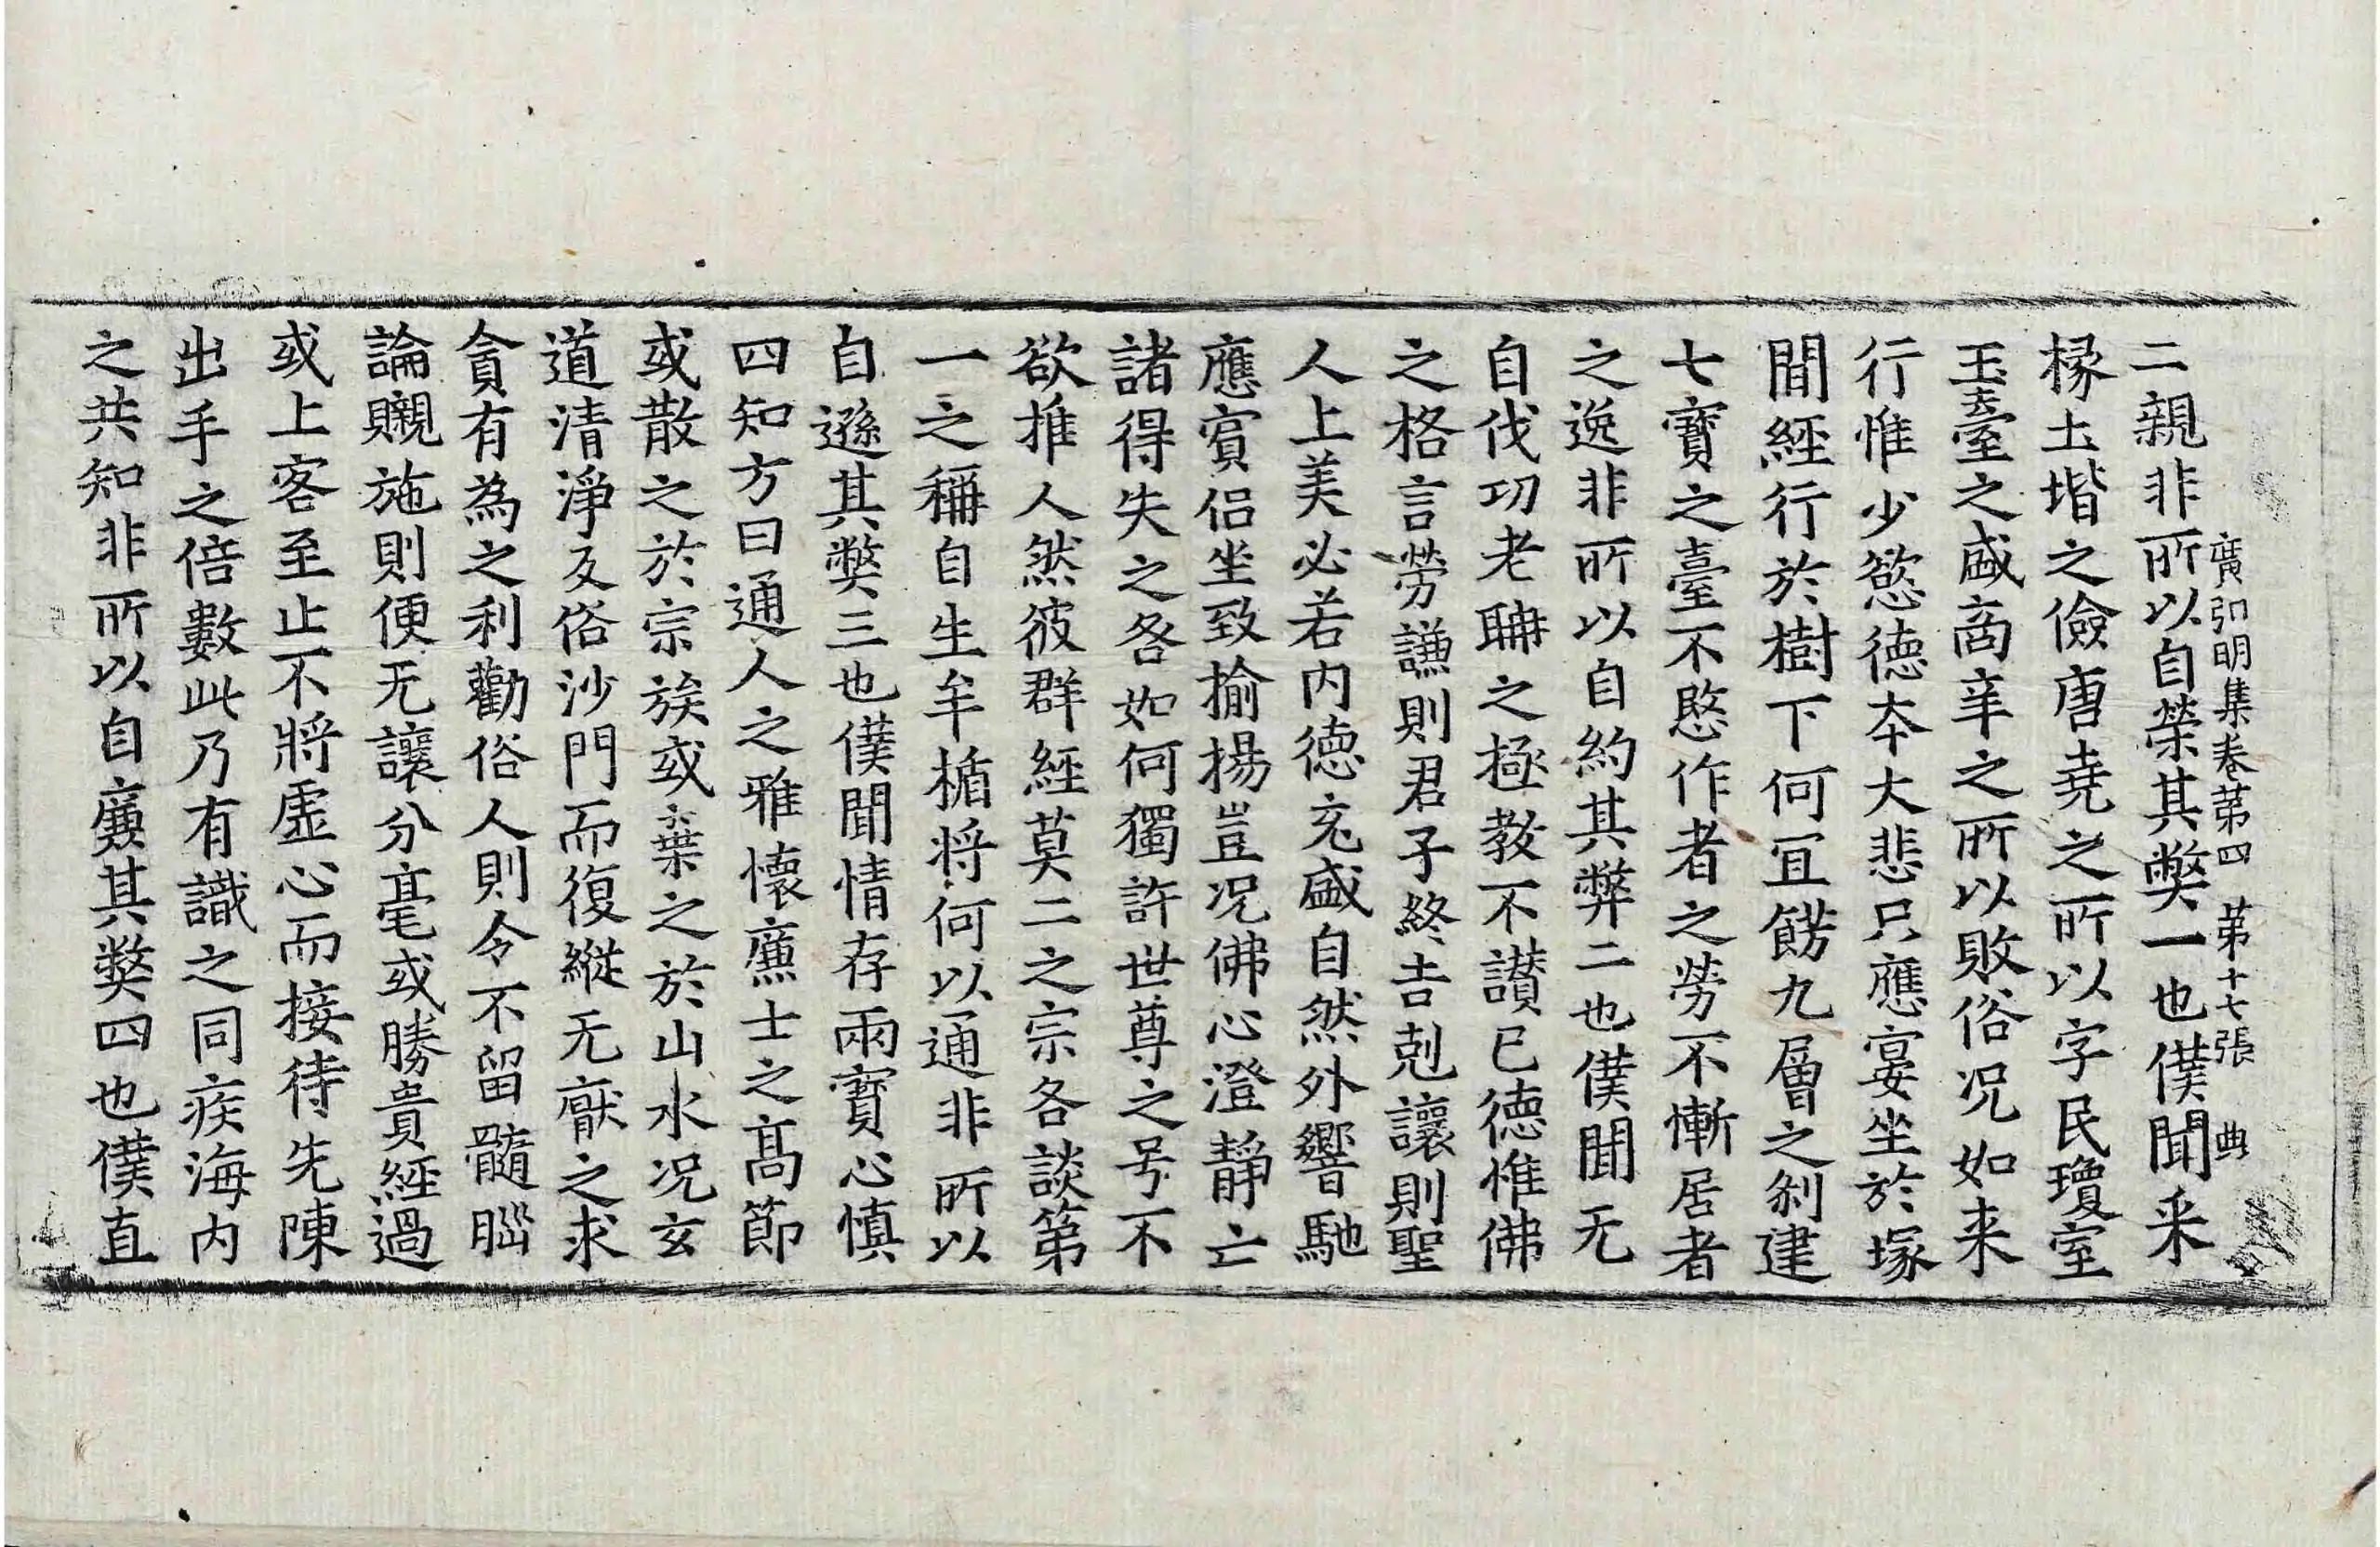 廣弘明集卷第四　第十七張　典
二親非所以自榮其獘一也僕聞采
椽土堦之儉唐堯之所以字民瓊室
玉臺之盛商辛之所以敗俗况如来
行惟少慾德本大悲只應宴坐於塚
間經行於樹下何冝餝九層之刹建
七寶之臺不愍作者之勞不慚居者
之逸非所以自約其弊二也僕聞无
自伐功老聃之極教不讃已德惟佛
之格言勞謙則君子終吉剋讓則聖
人上美必若内德充盛自然外響馳
應賓侣坐致揄揚豈况佛心澄静亡
諸得失之咎如何獨許世尊之号不
欲推人然彼群經莫二之宗各談第
一之稱自生牟楯将何以通非所以
自遜其獘三也僕聞情存兩寶心慎
四知方曰通人之雅懷廉士之髙節
或散之於宗族或棄之於山水况玄
道清淨反俗沙門而復縱无猒之求
貪有為之利勸俗人則令不留髓𦛁
論䞋施則便无讓分毫或勝貴經過
或上客至止不將虛心而接待先陳
出手之倍數此乃有識之同疾海内
之共知非所以自廉其獘四也僕直